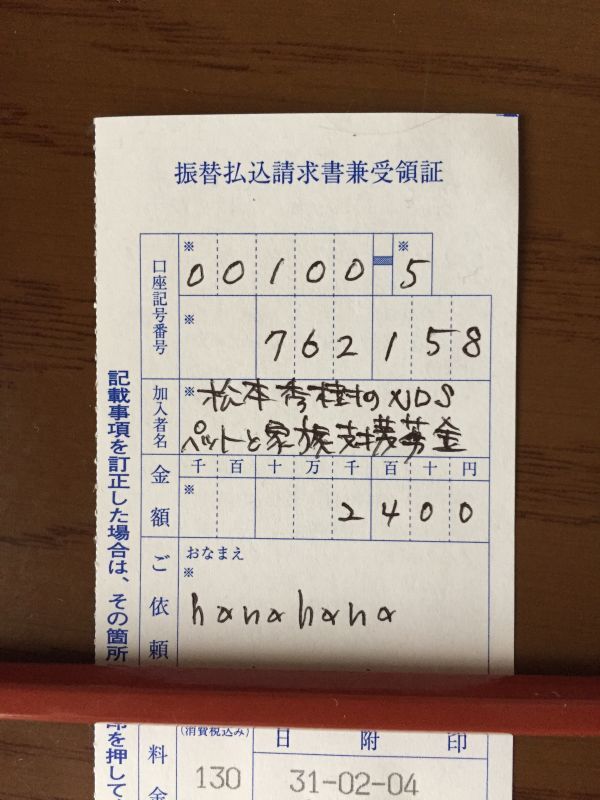 振替払込請求書兼受領証
口座記号番号
※ 00100-5 ※
※ 762158
加入者名
※松本秀樹のNDS
ペットと家族支援募金
金額
千 百 十 万 千 百 十 円
※ 2400
ご依頼
おなまえ
※
hanahana
料金
(消費税込み)
130
日 附 印
31-02-04
記載事項を訂正した場合は、その箇所
印を押して